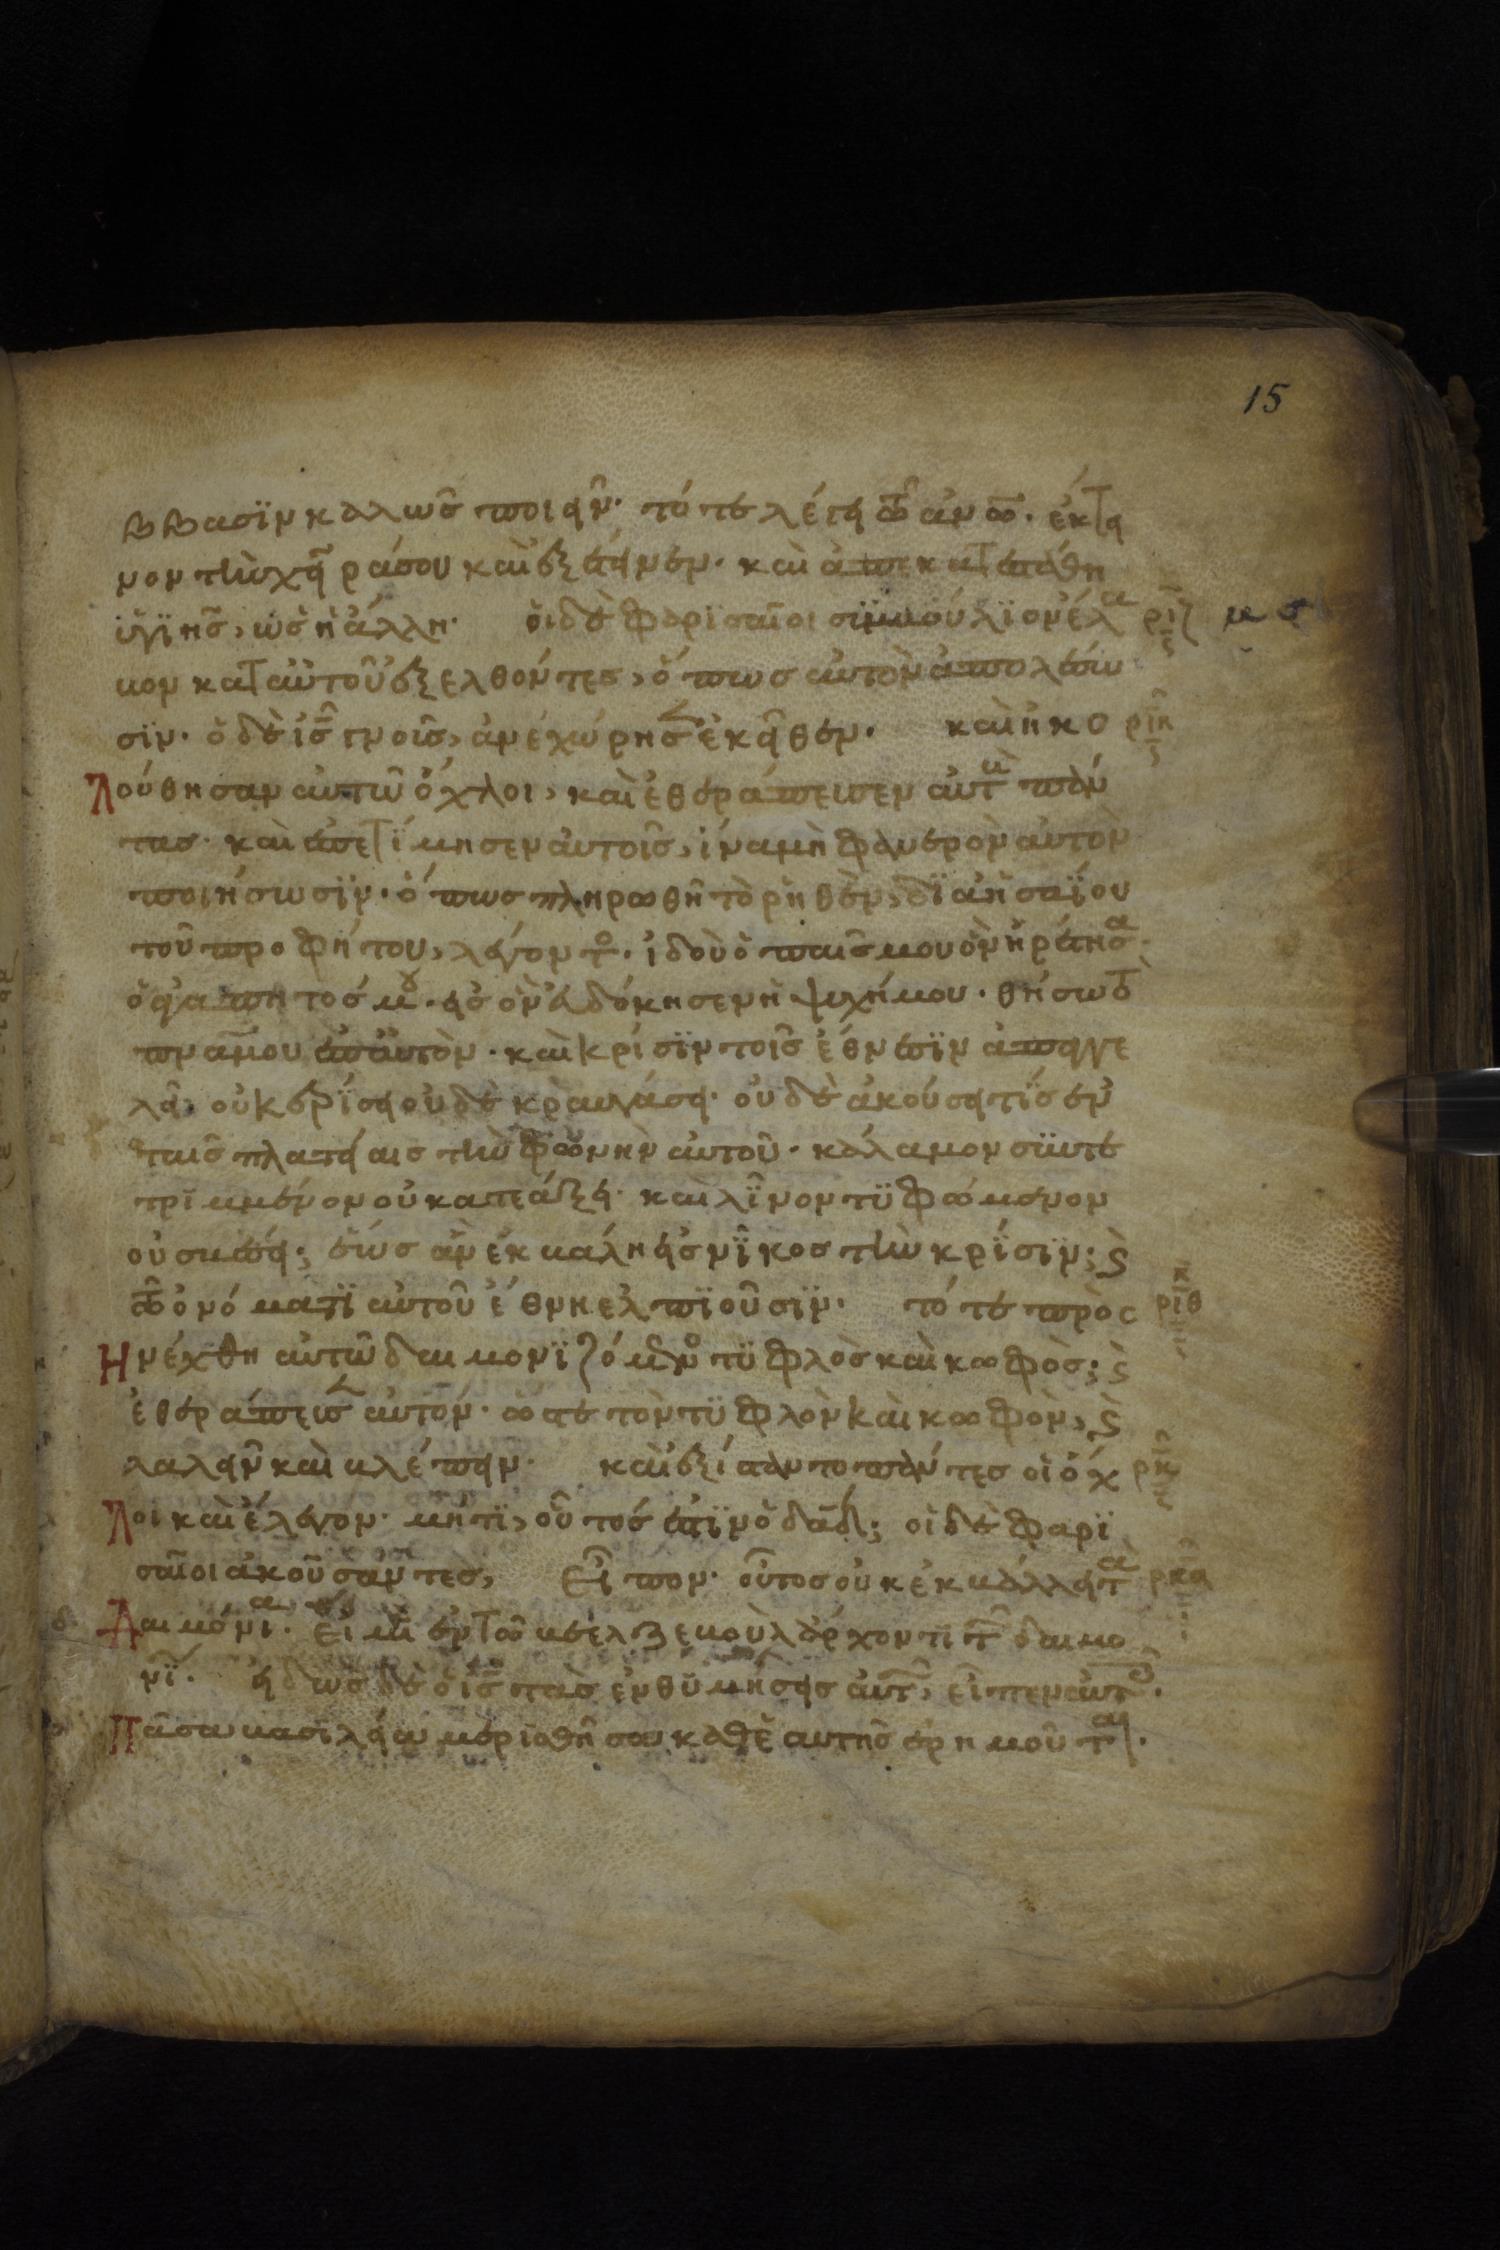 15
ββασϊν καλῶς ποιεῖν· τότε λέγει τῶ ἀνω. ἔκτει
νον τὴν χεῖρά σου καὶ ἐξέτεινεν· καὶ ἀπεκατεστάθη
ὑγιὴς, ὡς ἡ ἄλλη· οἱ δὲ φαρϊσαῖοι συμβούλϊον ἔλα ριζ
βον κατ αὐτοῦ ἐξελθόντες, ὅπως αὐτὸν ἀπολέσω
σϊν· ὁ δὲ ις γνοὺς, ἀνεχώρησεν ἐκεῖθεν· καὶ ἠκο ριη
λούθησαν αὐτῶ ὄχλοι, καὶ ἐθεράπευσεν αὐτ πάν
τας· καὶ ἐπετΐμησεν αὐτοῖς, ἵνα μὴ φανερὸν αὐτὸν
ποιήσωσϊν· ὅπως πληρωθῆ τὸ ῥηθὲν, δϊὰ ἡσαΐου
τοῦ προφήτου, λέγοντο· ἰδοὺ ὁ παῖς μου ὃν ἡρέτησα·
ὁ ἀγαπητός μου· εἰς ὃν εὐδόκησεν ἡ ψυχή μου· θήσω τὸ
πνα μου ἐπ αὐτὸν· καὶ κρίσϊν τοῖς ἔθνεσϊν ἀπαγγε
λεῖ· οὐκ ερίσει οὐδὲ κραυγάσει· οὐδὲ ἀκούσει τὶς ἐν
ταῖς πλατείαις τὴν φωνὴν αὐτοῦ· κάλαμον συντε
τριμμένον οὐ κατεάξει· καὶ λΐνον τϋφόμενον
οὐ σβέσει; ἕως ἂν ἐκβάλη εἰς νῖκος τὴν κρΐσϊν; ϛ
τῶ ὀνόματϊ αὐτοῦ ἔθνη ἐλπϊοῦσϊν· τότε προσ ριθ
Ηνέχθη αὐτῶ δαιμονϊζόμενο τϋφλὸς καὶ κωφὸς; ϛ
ἐθεράπευσεν αὐτόν· ὥστε τὸν τϋφλὸν καὶ κωφὸν, ϛ
λαλεῖν καὶ βλέπειν· καὶ ἐξίσταντο πάντες οἱ ὄχ ρκ
Λοι καὶ ἔλεγον· μήτϊ, οὗτός ἐστϊν ὁ δαδ; οἱ δὲ φαρϊ
σαῖοι ἀκούσαντες, Εἶπον· οὗτος οὐκ ἐκβάλλει τὰ ρκα
Δαιμόνια· εἰ μὴ ἐν τῶ βεελζεβοὺλ ἄρχοντϊ τῶν δαιμο
νΐ· εἰδὼς δὲ ὁ ις τὰς ἐνθϋμήσεις αὐτῶν, εἶπεν αὐτοῖς·
Πᾶσα βασϊλεία μερισθεῖσα καθ ἑαυτῆς ἐρημοῦται·